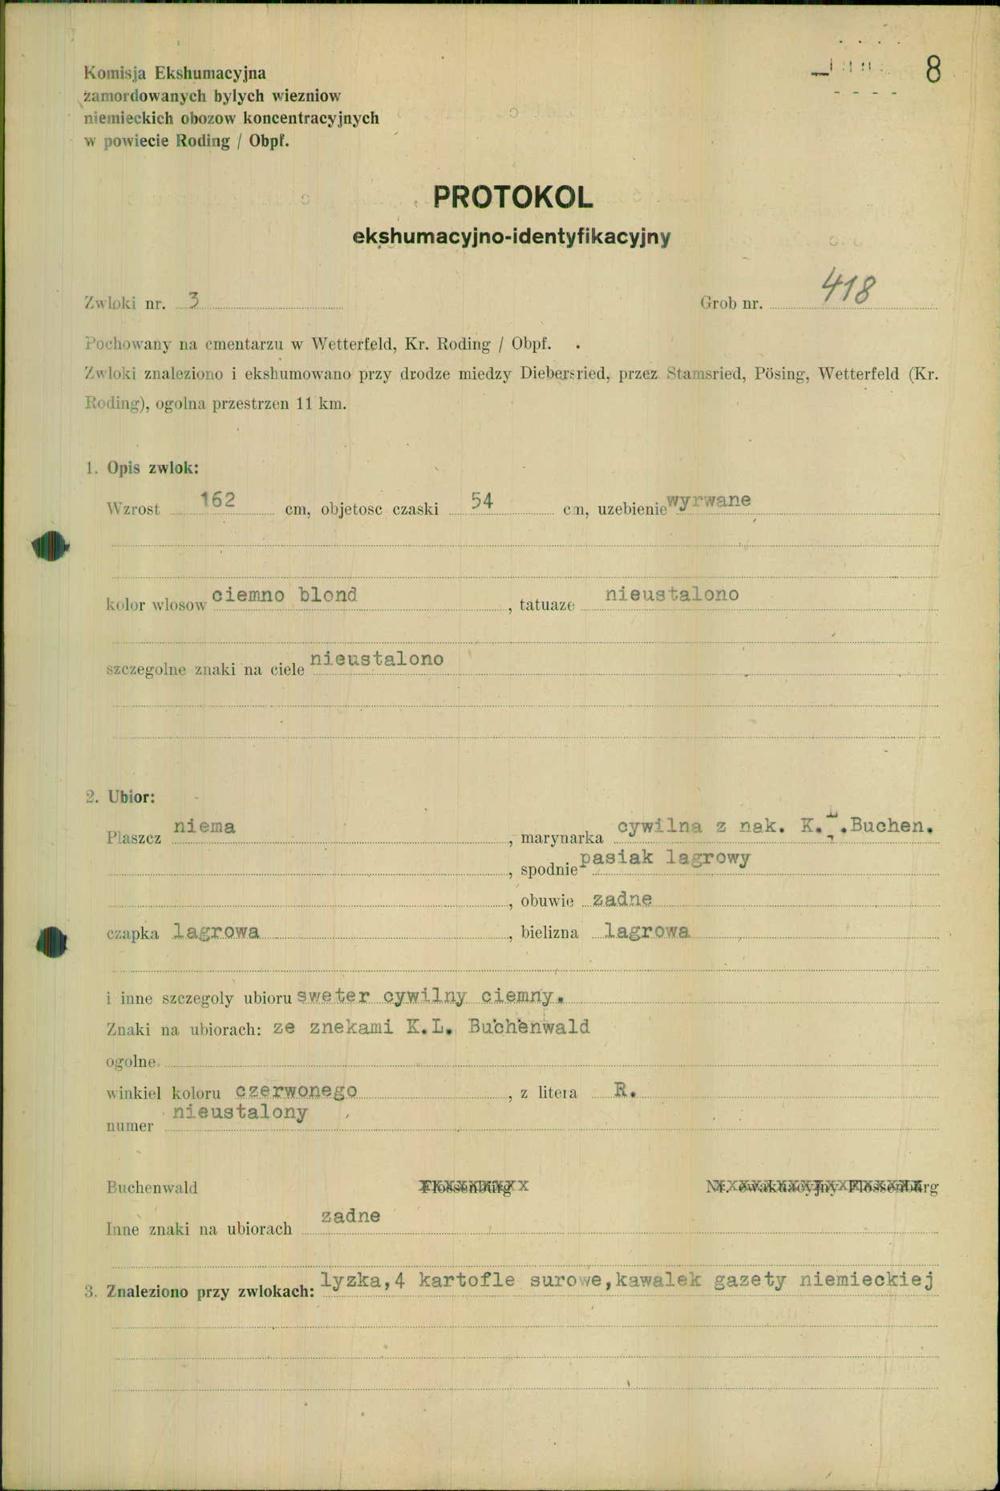 Komisja Ekshumacyjna
zamordowanych bylych wiezniow
niemieckich obozow koncentracyjnych
w powiecie Roding / Obpf.
8
PROTOKOL
ekshumacyjno-identyfikacyjny
Zwloki nr. 3 Grob nr. 418
Pochowany na cmentarzu w Wetterfeld, Kr. Roding / Obpf.
Zwloki znaleziono i ekshumowano przy drodze miedzy Diebersried, przez Stamsried, Pösing, Wetterfeld (Kr.
Roding), ogolna przestrzen 11 km.
1. Opis zwlok:
Wzrost 162 cm, objetosc czaski 54 cm, uzebienie wyrwane
kolor wlosow ciemno blond , tatuaze nieustalono
szczegolne znaki na ciele nieustalono
2. Ubior:
Plaszcz niema , marynarka cywilna z nak. K.L.Buchen.
, spodnie pasiak lagrowy
, obuwie zadne
czapka lagrowa , bielizna lagrowa
i inne szczegoly ubioru sweter cywilny ciemny.
Znaki na ubiorach: ze znekami K.L. Buchenwald
ogolne
winkiel koloru czerwonego , z litera R.
numer nieustalony
Buchenwald Flossenbürg Nr. ewakuacyjny Flossenbürg
Inne znaki na ubiorach zadne
3. Znaleziono przy zwlokach: lyzka,4 kartofle surowe,kawalek gazety niemieckiej